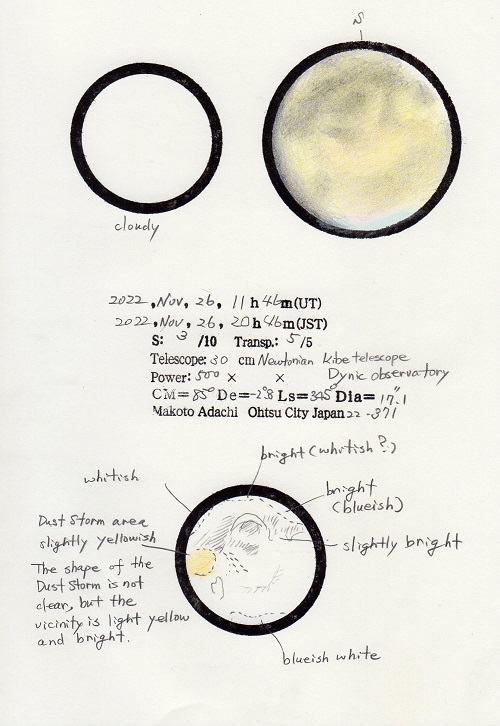 S
cloudy
2022, Nov, 26, 11 h 46m (UT)
2022, Nov, 26, 20 h 46m (JST)
S: 3 /10 Transp.: 5 /5
Telescope: 30 cm Newtonian Kibe telescope
Power: 500 × × Dynic observatory
CM= 85° De= -2°.8 Ls= 345° Dia= 17".1
Makoto Adachi Ohtsu City Japan 22-371
bright (whitish?)
whitish
bright
(blueish)
Dust Storm area
slightly yellowish
slightly bright
The shape of the
Dust Storm is not
clear, but the
vicinity is light yellow
and bright.
blueish white